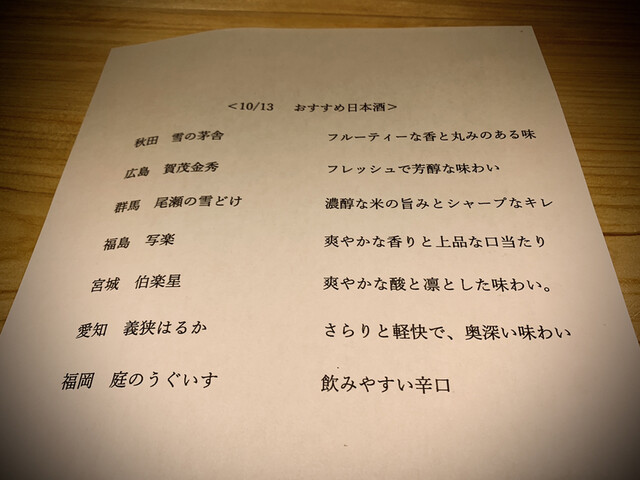 <10/13 おすすめ日本酒>
秋田 雪の茅舎 フルーティーな香と丸みのある味
広島 賀茂金秀 フレッシュで芳醇な味わい
群馬 尾瀬の雪どけ 濃醇な米の旨みとシャープなキレ
福島 写楽 爽やかな香りと上品な口当たり
宮城 伯楽星 爽やかな酸と凛とした味わい。
愛知 義狭はるか さらりと軽快で、奥深い味わい
福岡 庭のうぐいす 飲みやすい辛口